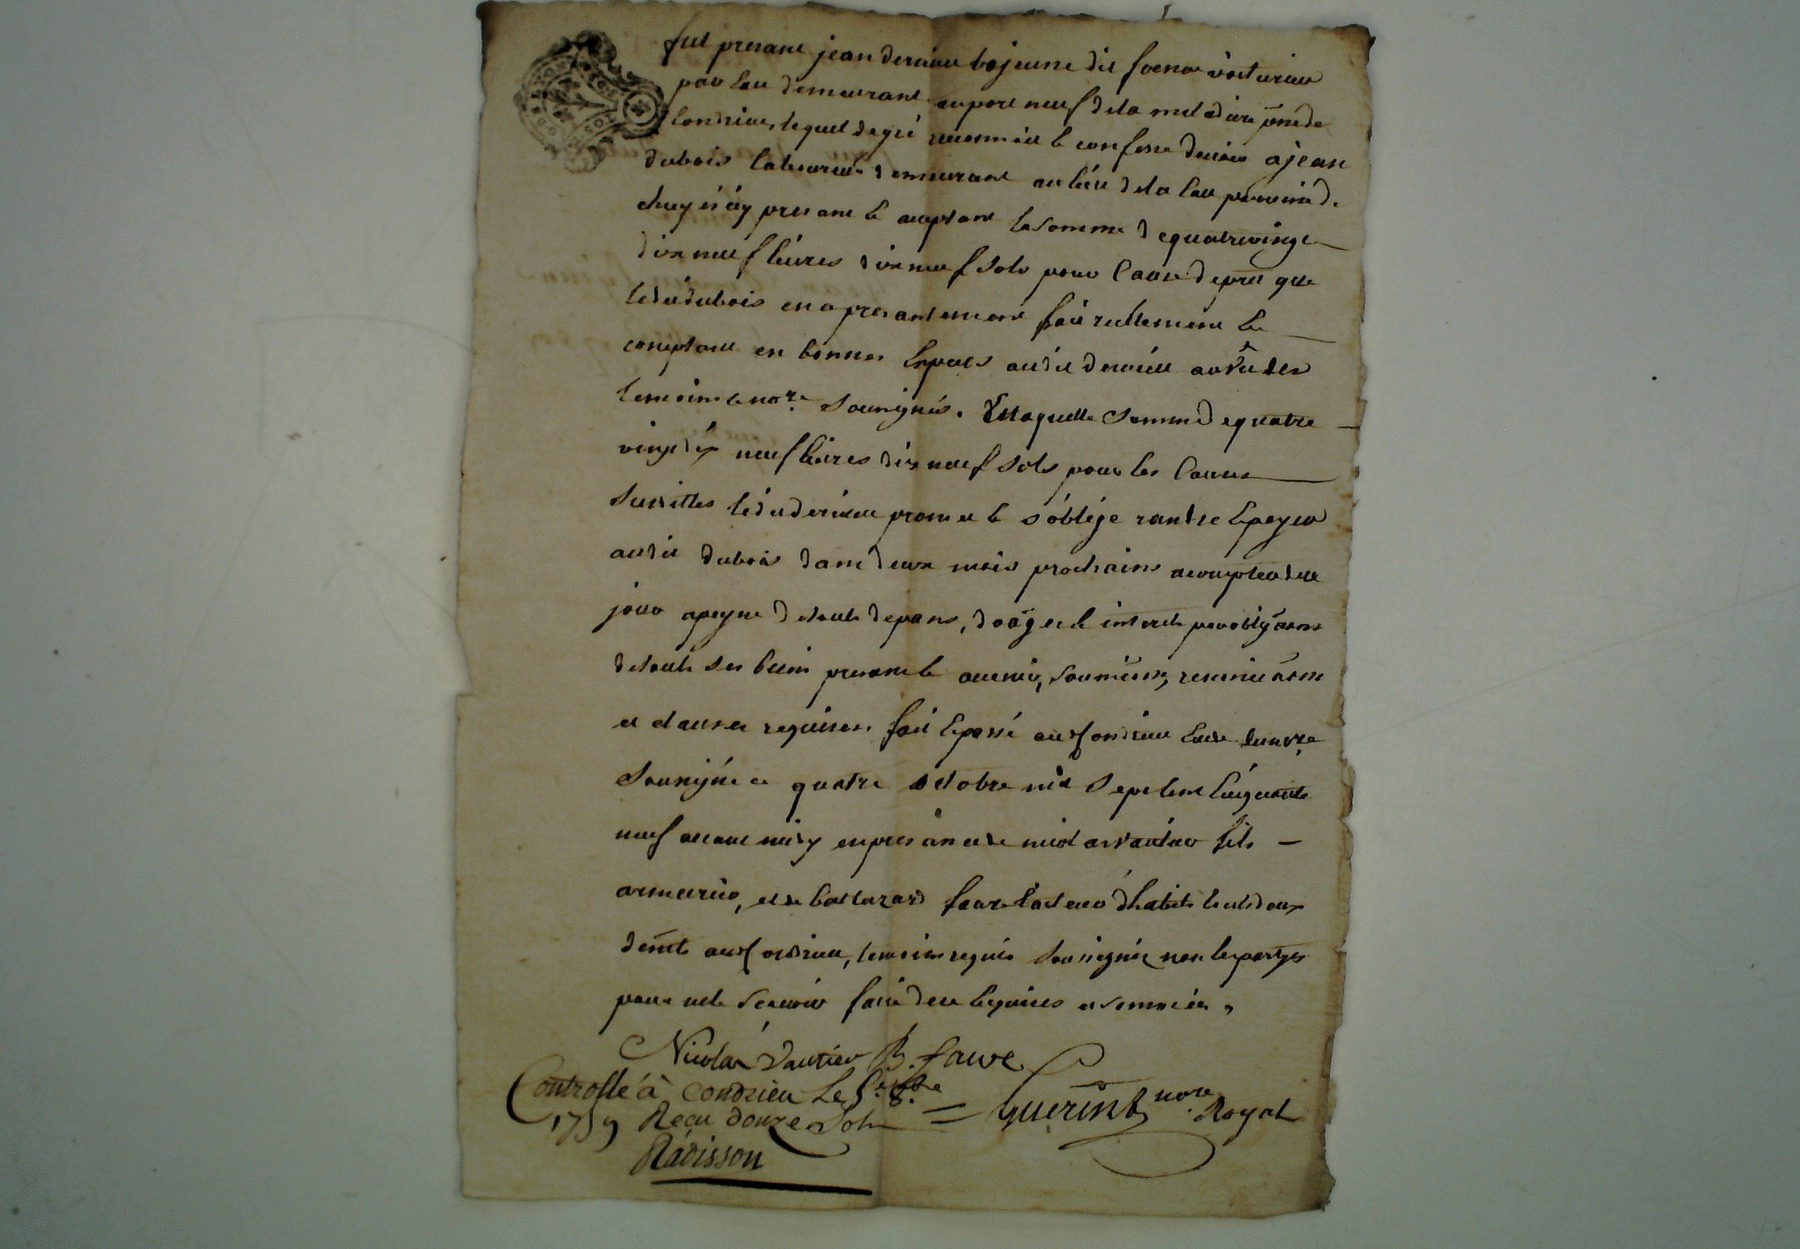 fut presant jean derieu le jeune dit voiturier
par eau demeurant au port neuf de la
Condrieu, lequel de gré reconnoit et confesse devoir a jean
dubois laboureur demeurant au lieu de la
chuyé icy presant et aceptant la somme de quatrevingt
dix neuf livres dix neuf sols pour cause de prest que
ledit dubois en a presantement fait reellement et
comptant en bonnes Especes audit derieu au vu des
temoins et nore. soussignés. Laquelle somme de quatre
vingt dix neuf livres dix neuf sols pour les causes
susdittes ledit derieu promet et s'oblige randre et payer
audit dubois dans deux mois prochains a compter de ce
jour a peyne de touts depans, domages et interets par obligāons
de touts ses biens presans et avenir, soumissions, renonciāons
et clauses requises fait et passé audit Condrieu Etude du nore.
soussigné ce quatre octobre mil sept cent cinquante
neuf avant midy en presance de nicolas vautier fils
armurier, et de baltazard faure tailleur d'habits touts deux
demts audit Condrieu, temoins requis soussignés non les partyes
pour ne le scavoir faire de ce enquises et sommées,
Nicolas Vautier B. faure
Controllé à Condrieu Le 5.e 8.bre
1759 Reçu douze Sols = Guerin nore. Royal
Radisson